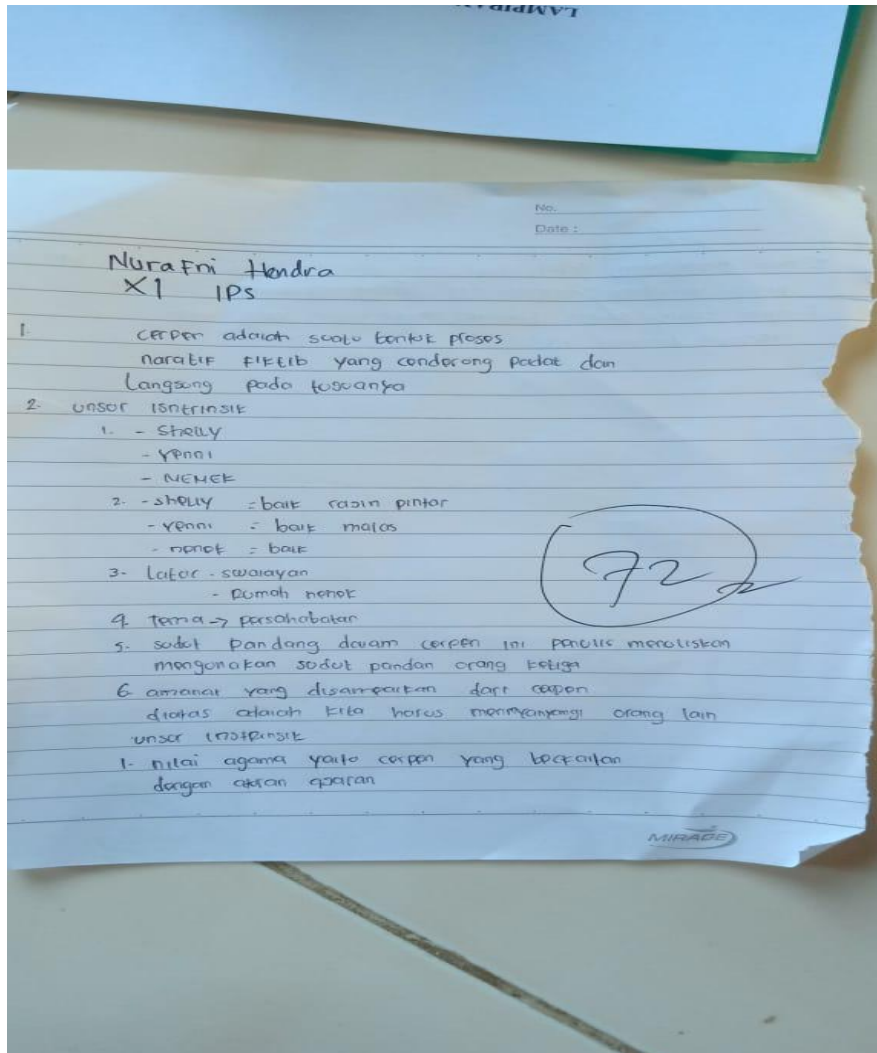 LAMPIRAN
No.
Date :
Nurafni Hendra
X1 IPS
1. cerpen adalah suatu bentuk proses
naratif fiktib yang conderong padat dan
langsung pada tusuanya
2. unsor isntrinsik
1. - Shelly
- Yenni
- NENEK
2. - shelly = baik rasin pintar
- yenni = baik malas
- nenek = baik
3- Lator - swalayan
- Rumah nenek
4. tema → persahabatan
5- sudut pandang dalam cerpen ini penulis menuliskan
mengunakan sudut pandan orang ketiga
6 amanat yang disampaikan dari cerpen
diatas adalah kita harus menyanyangi orang lain
unsor
1- nilai agama yaito cerpen yang berkaitan
dengan
72
MIRAGE